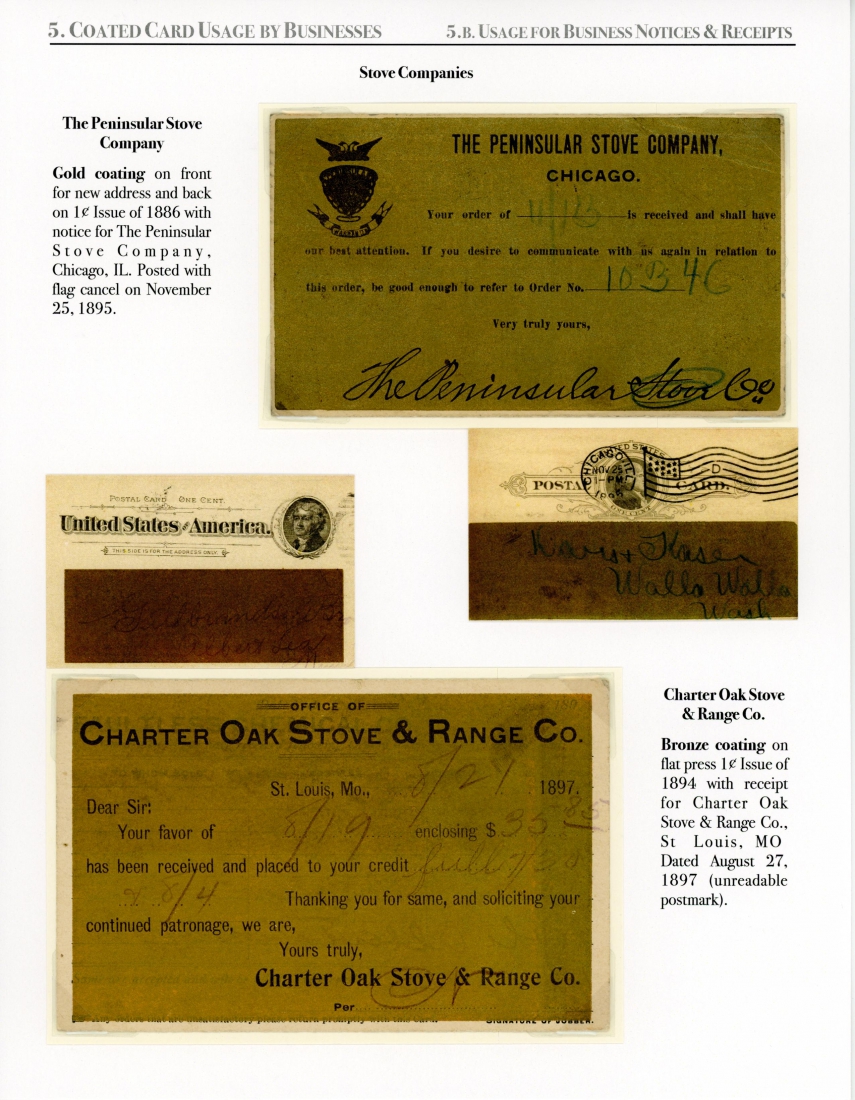 5. COATED CARD USAGE BY BUSINESSES
5.B. USAGE FOR BUSINESS NOTICES & RECEIPTS
Stove Companies
The Peninsular Stove
Company
Gold coating on front
for new address and back
on 1¢ Issue of 1886 with
notice for The Peninsular
Stove Company,
Chicago, IL. Posted with
flag cancel on November
25, 1895.
THE PENINSULAR STOVE COMPANY,
CHICAGO.
Your order of 11/13 is received and shall have
our best attention. If you desire to communicate with us again in relation to
this order, be good enough to refer to Order No. 10346
Very truly yours,
The Peninsular Stove Co
UNITED STATES
POSTAL CARD.
ONE CENT
CHICAGO, ILL.
NOV 25
1-PM
1895
D
Walla Walla
Wash
POSTAL CARD ONE CENT.
United States of America.
THIS SIDE IS FOR THE ADDRESS ONLY.
OFFICE OF
CHARTER OAK STOVE & RANGE CO.
St. Louis, Mo., 8/27 1897.
Dear Sir:
Your favor of 8/19 enclosing $ 35 85
has been received and placed to your credit
8/4 Thanking you for same, and soliciting your
continued patronage, we are,
Yours truly,
Charter Oak Stove & Range Co.
Per
Any orders that are unsatisfactory please return promptly with this card. SIGNATURE OF JOBBER.
Charter Oak Stove
& Range Co.
Bronze coating on
flat press 1¢ Issue of
1894 with receipt
for Charter Oak
Stove & Range Co.,
St Louis, MO
Dated August 27,
1897 (unreadable
postmark).